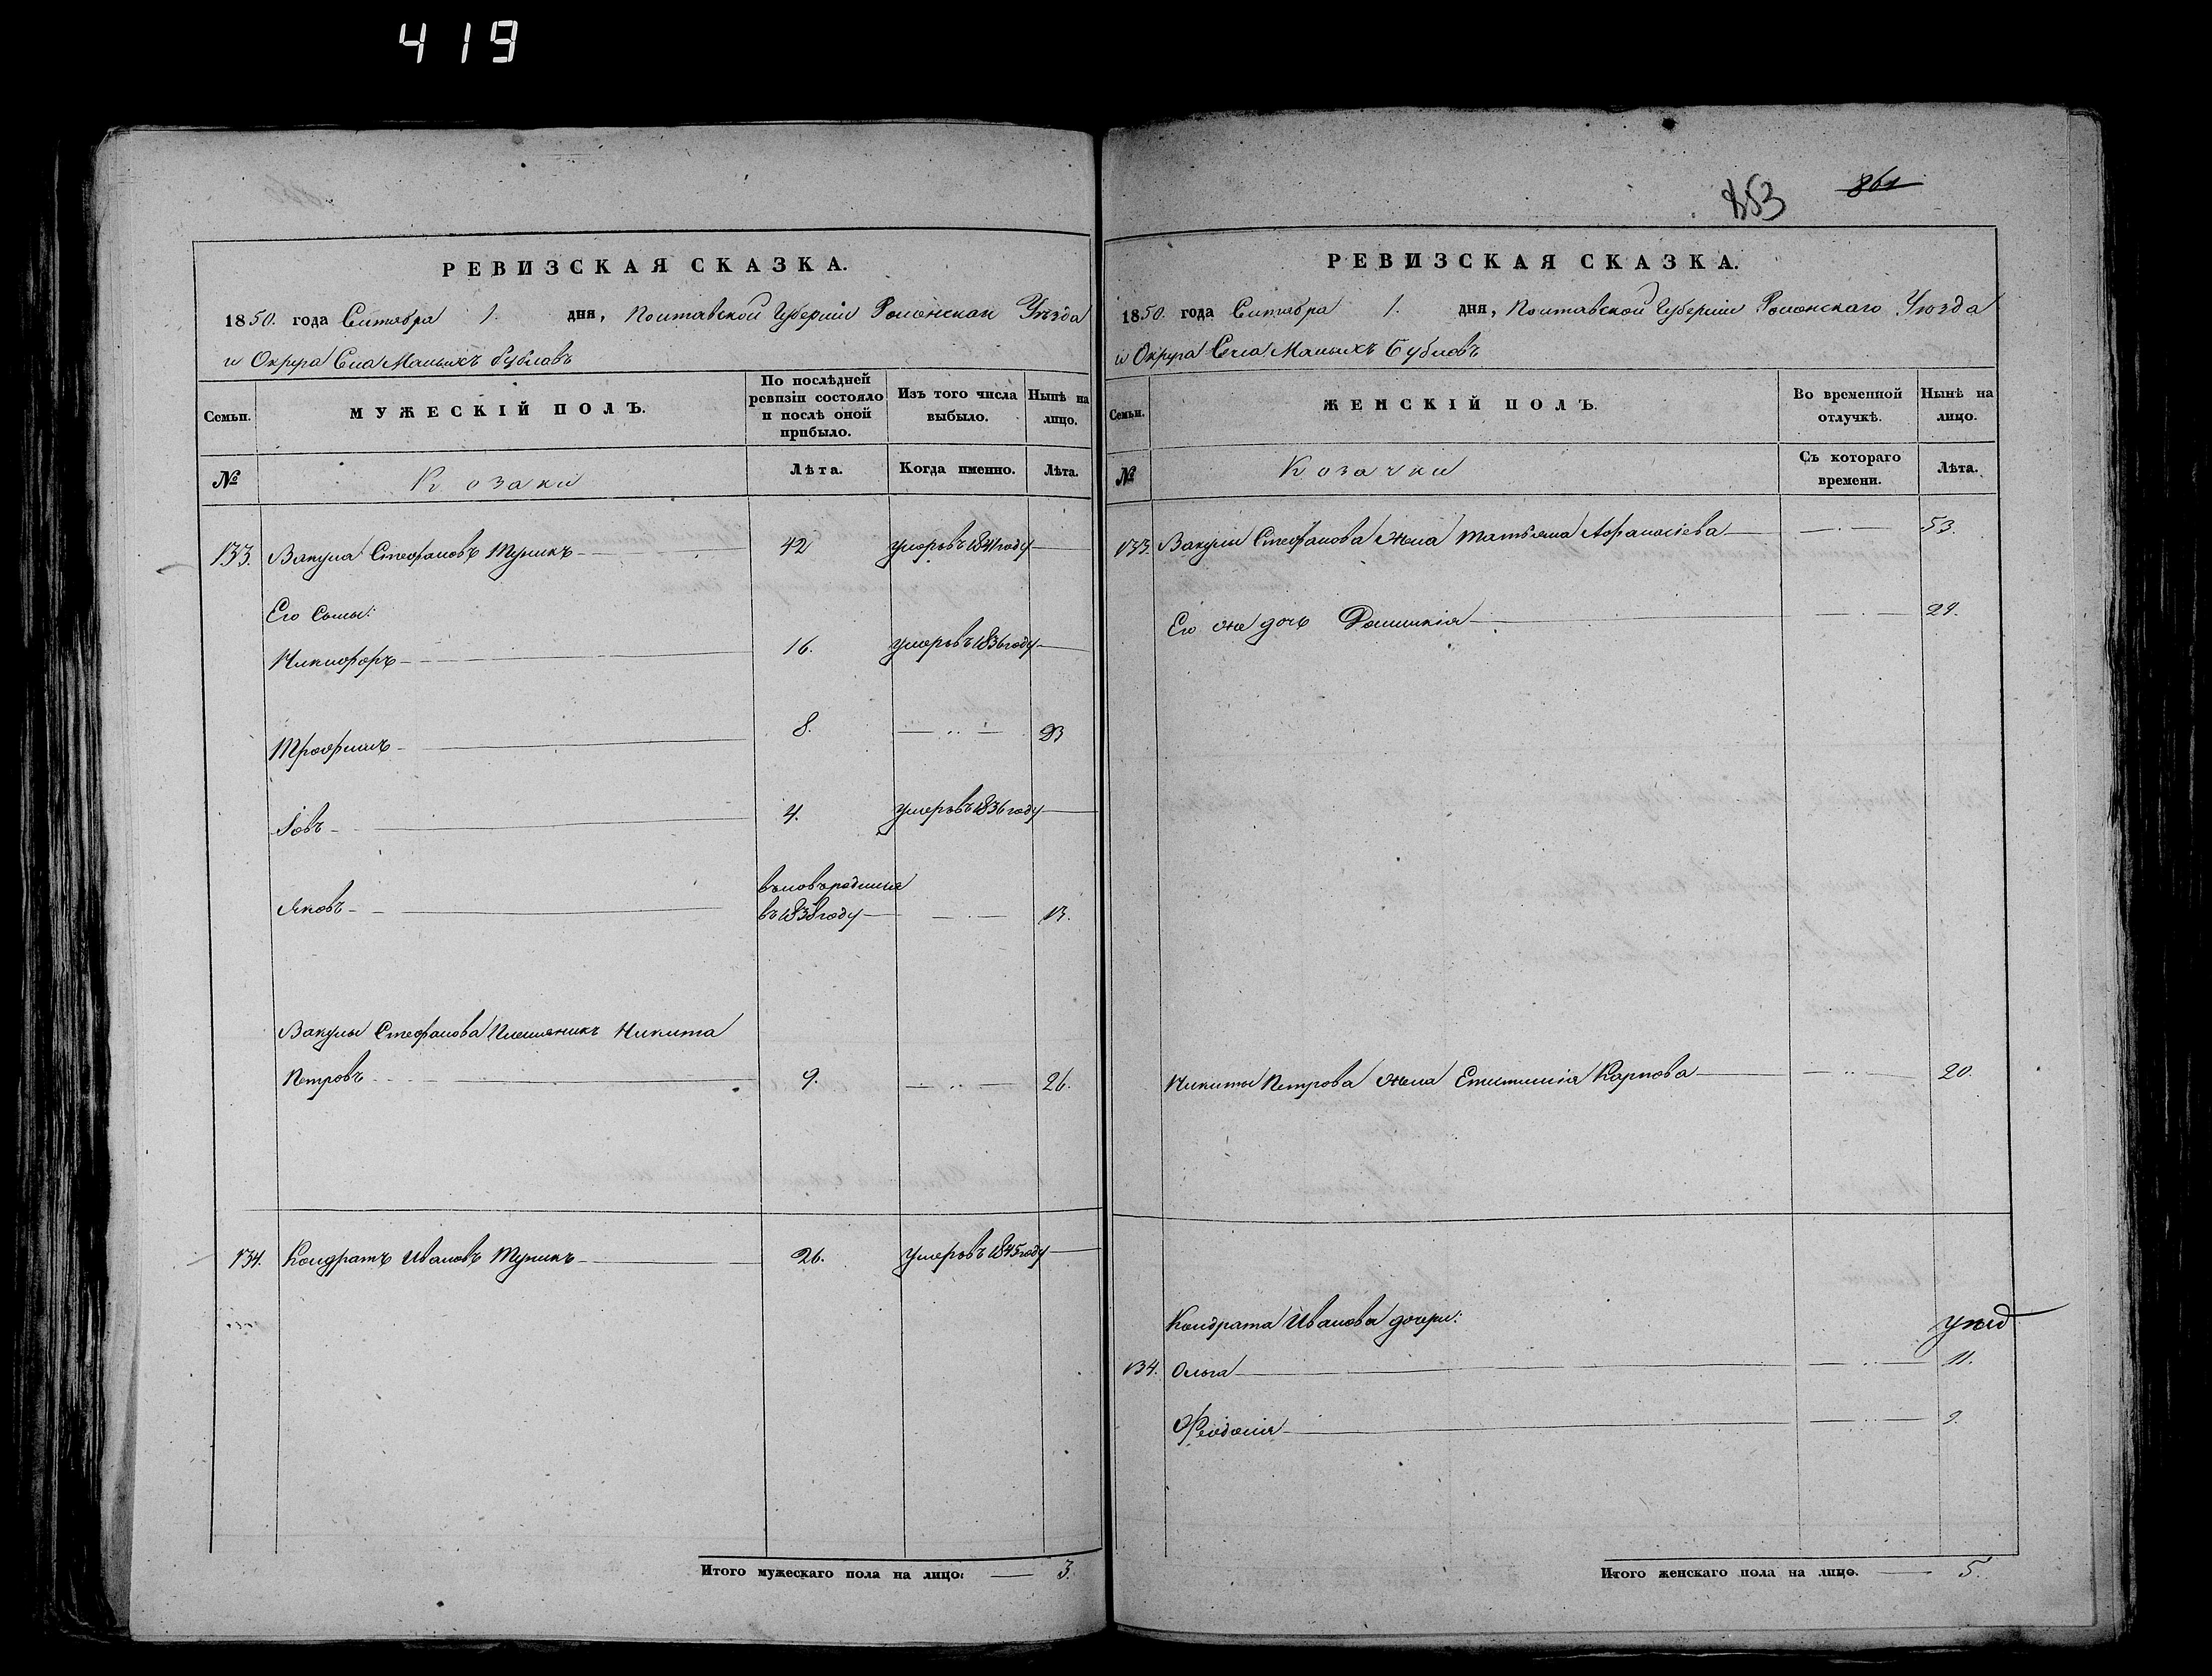 419
РЕВИЗСКАЯ СКАЗКА.
1850. года Сентября 1. дня, Полтавской Губерніи Роменскаго Уѣзда
и Округа Села Малыхъ Бубновъ
Семьи.
МУЖЕСКІЙ ПОЛЪ.
По послѣдней ревизіи состояло и послѣ оной прибыло.
Изъ того числа выбыло.
Нынѣ на лицо.
№
Козаки
Лѣта.
Когда именно.
Лѣта.
133. Вакула Стефановъ Тупикъ 42 умеръ въ 1841 году
Его Сыны:
Никифоръ 16. умеръ въ 1836 году
Трофимъ 8. 23
Іовъ 4. умеръ въ 1836 году
вновьродился
Яковъ въ 1838 году 13.
Вакулы Стефанова Племяникъ Никита
Петровъ 9. 26.
134. Кондратъ Ивановъ Тупикъ 26. умеръ въ 1845 году
Итого мужескаго пола на лицо: 3.
853 861
РЕВИЗСКАЯ СКАЗКА.
1850. года Сентября 1. дня, Полтавской Губерніи Роменскаго Уѣзда
и Округа Села Малыхъ Бубновъ
Семьи.
ЖЕНСКІЙ ПОЛЪ.
Во временной отлучкѣ.
Нынѣ на лицо.
№
Козачки
Съ котораго времени.
Лѣта.
133. Вакулы Стефанова жена Татьяна Афанасіева 53.
Его же дочь Домникія 29.
Никиты Петрова жена Епистимія Карпова 20.
Кондрата Иванова дочери:
134. Ольга 11.
Феодосія 9.
Итого женскаго пола на лицо. 5.